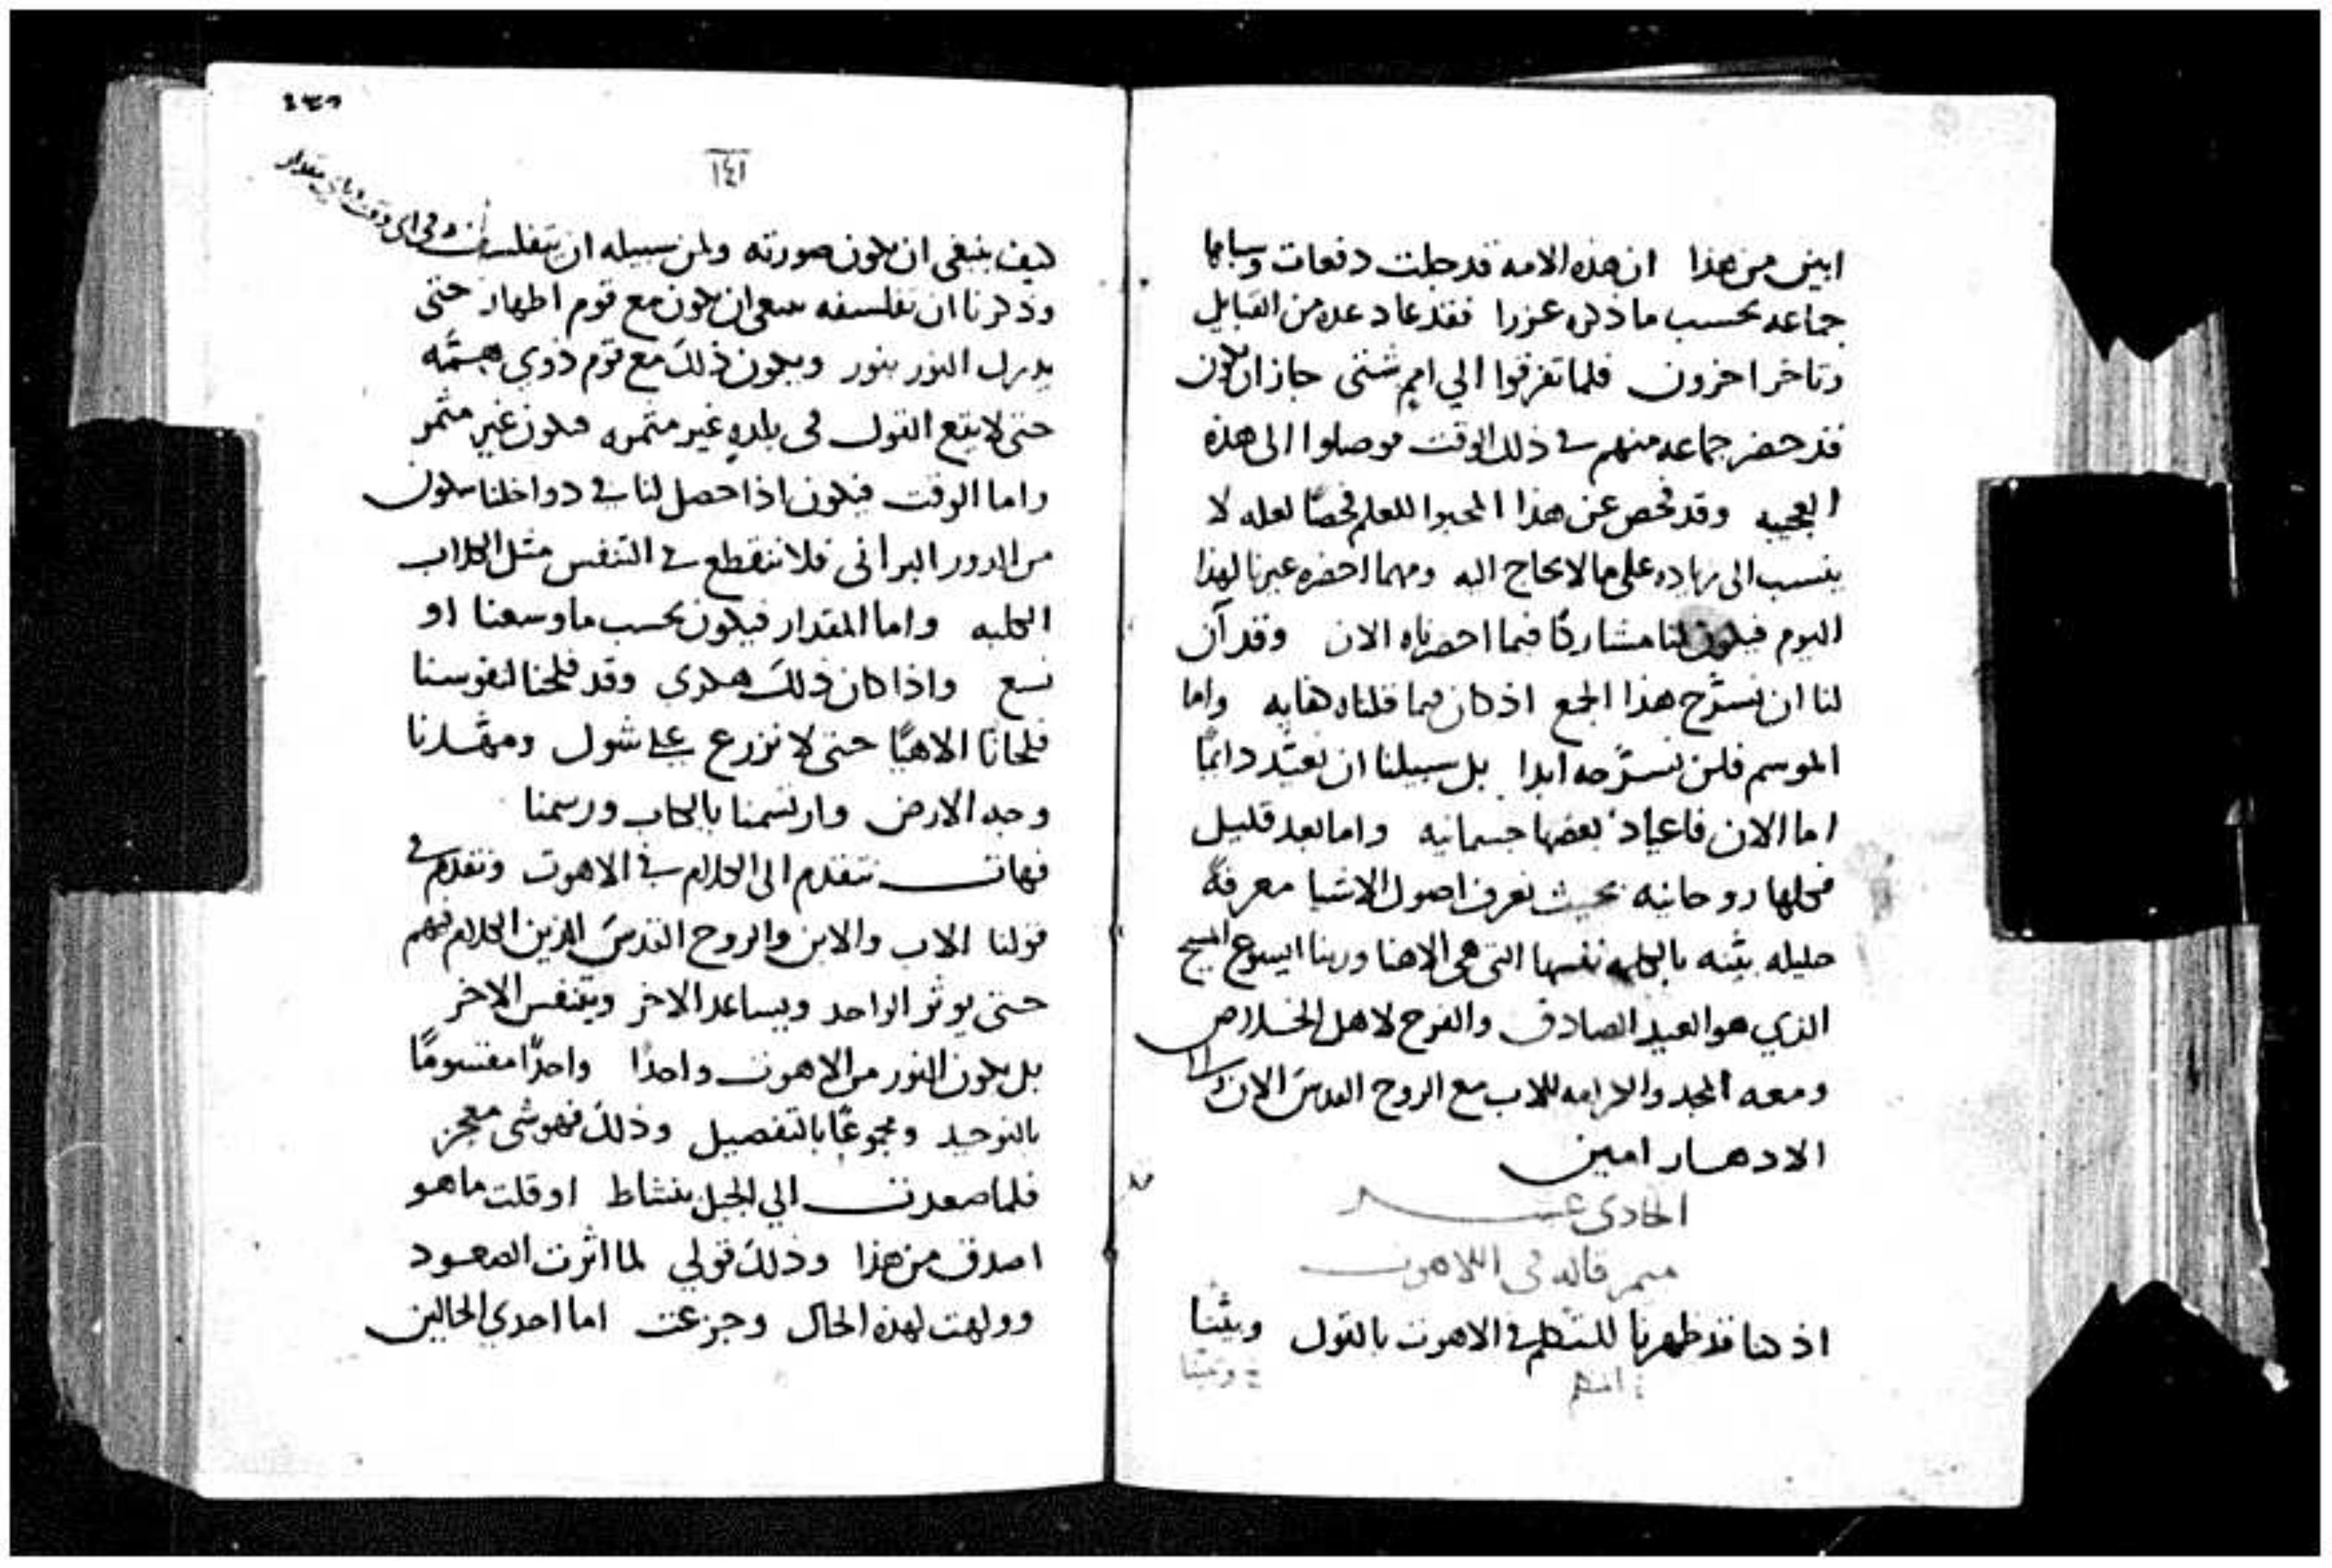 ابين من هذا ان هذه الامه قد جلت دفعات وسباها
جماعه بحسب ما ذكره عزرا فقد عاد عده من القبايل
وتاخر اخرون فلما تفرقوا الي امم شتى جاز ان يكون
قد حضر جماعه منهم في ذلك الوقت فوصلوا الى هذه
العجيبه وقد فحص عن هذا المحبوا للعلم فحصًا لعله لا
ينسب الى زياده على ما لا يحتاج اليه ومهما احضره غيرنا لهذا
اليوم فيكون لنا مشاركًا فيما احضرناه الان وقد آن
لنا ان نسرّح هذا الجمع اذ كان فيما قلناه كفايه واما
الموسم فلن نسرّحه ابدا بل سبيلنا ان نعيّد دائمًا
اما الان فاعياد بعضها جسمانيه واما بعد قليل
فكلها روحانيه بحيث نعرف اصول الاشيا معرفةً
جليله بيّنه بالكلمه نفسها التي هي الاهنا وربنا ايسوع المسيح
الذي هو العيد الصادق والفرح لاهل الخلاص
ومعه المجد والاكرامه للاب مع الروح القدس الان والى
الادهار امين
الحادى عشر
ميمر قاله في اللاهوت
اذ كنا قد ظهرنا للتكلم في الاهوت بالقول وبيّنا
= وبيّنا
١٤١
كيف ينبغي ان يكون صورته ولمن سبيله ان يتفلسف وفي اي وقت وباي مقدار
وذكرنا ان تفلسفه ينبغي ان يكون مع قوم اطهار حتى
يدرك النور بنور ويكون ذلك مع قوم ذوي همّه
حتى لا يقع القول في بلده غير مثمره فيكون غير مثمر
واما الوقت فيكون اذا حصل لنا في دواخلنا سكون
من الدور البراني فلا ننقطع في التنفس مثل الكلاب
الكلبه واما المقدار فيكون بحسب ما وسعنا او
نسع واذا كان ذلك هكذي وقد فلحنا لنفوسنا
فلحانًا الاهيًا حتى لا نزرع على شوك ومهّدنا
وجه الارض وارتسمنا بالكتاب ورسمنا
فهات نتقدم الى الكلام في الاهوت ونقدم في
قولنا الاب والابن والروح القدس الذين الكلام فيهم
حتى يوثر الواحد ويساعد الاخر ويتنفس الاخر
بل يكون النور من الاهوت واحدًا واحدًا مقسومًا
بالتوحيد ومجموعًا بالتفصيل وذلك فهو شي معجز
فلما صعدت الي الجبل بنشاط او قلت ما هو
اصدق من هذا وذلك قولي لما اثرت الصعود
وولهت لهذه الحال وجزعت اما احدي الحالين